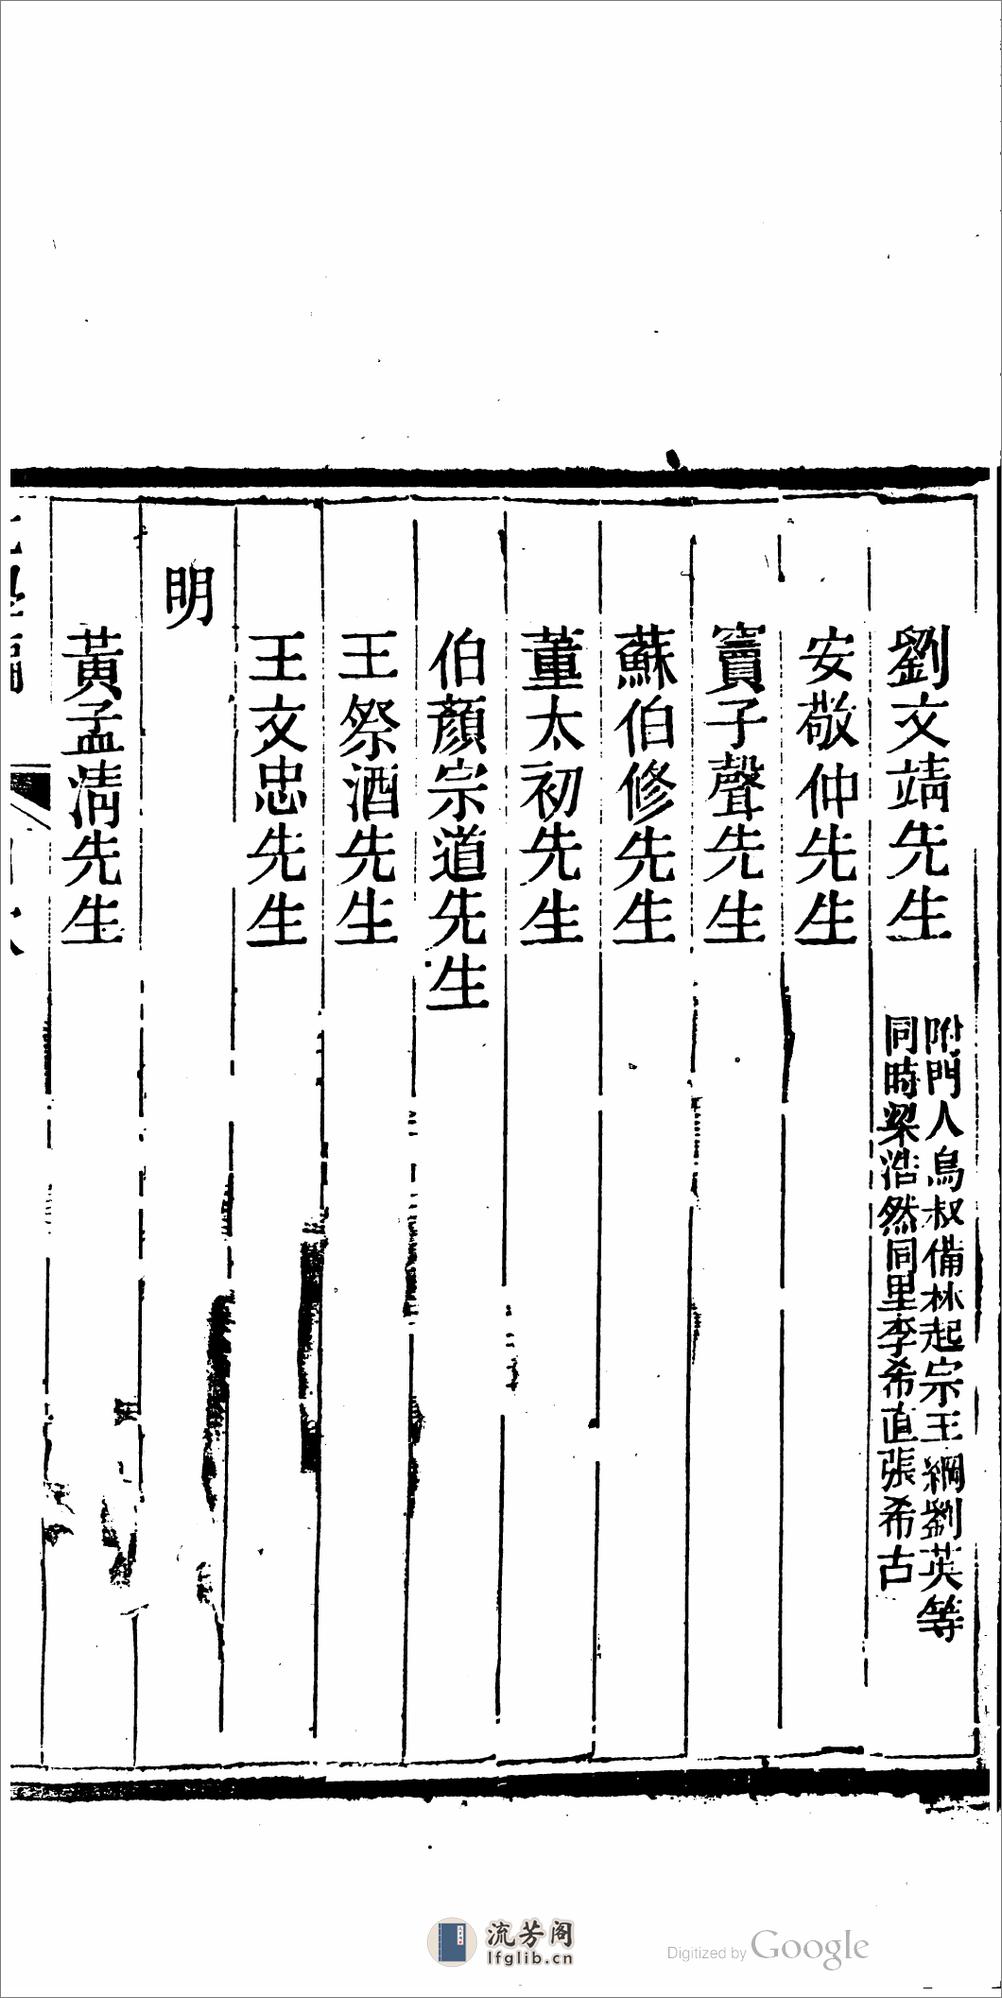 劉文靖先生
附門人烏叔備林起宗王綱劉英等
同時梁浩然同里李希直張希古
安敬仲先生
竇子聲先生
蘇伯修先生
董太初先生
伯顏宗道先生
王祭酒先生
王文忠先生
明
黃孟清先生
流芳阁
lfglib.cn
Digitized by Google